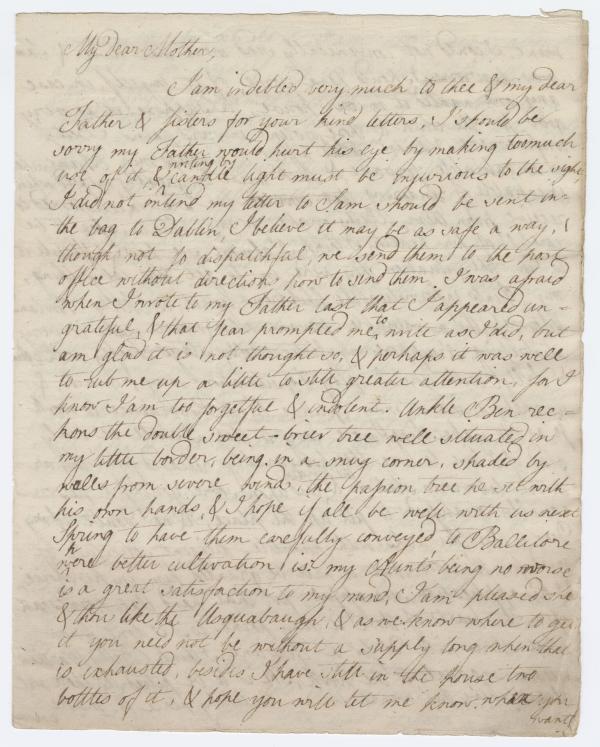 My Dear Mother,
I am indebted very much to thee & my dear
Father & Sisters for your kind letters, I should be
sorry my Father would hurt his eye by making too much
use of it, & writing by candle light must be injurious to the sight,
I did not intend my letter to Sam should be sent in
the bag to Dublin, I believe it may be as safe a way,
though not so dispatchful, we send them to the post
office without directions how to send them. I was afraid
when I wrote to my Father last that I appeared un-
grateful, & that fear prompted me to write as I did, but
am glad it is not thought so, & perhaps it was well
to rub me up a little to still greater attention, for I
know I am too forgetful & indolent. Unkle Ben rec-
kons the double sweet-brier tree well situated in
my little border, being in a snug corner, shaded by
walls from severe winds, the passion tree he set with
his own hands, & I hope if all be well with us next
Spring to have them carefully conveyed to Ballitore
where better cultivation is. my Aunt's being no worse
is a great satisfaction to my mind, I am pleased she
& thou like the Usquabaugh, & as we know where to get
it you need not be without a supply long when that
is exhausted, besides I have still in the house two
bottles of it, & hope you will let me know when you
want